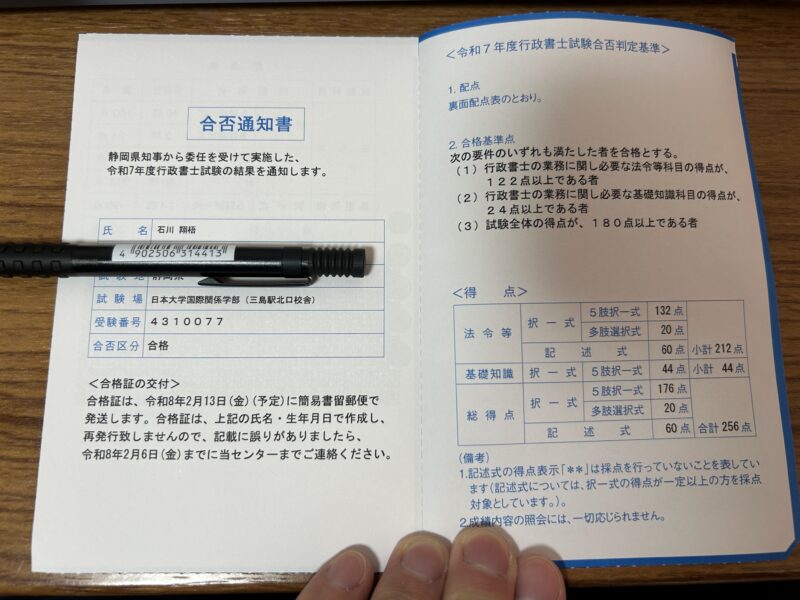 合否通知書
静岡県知事から委任を受けて実施した、
令和7年度行政書士試験の結果を通知します。
氏 名 石川 翔梧
4 902506 314413
試験地 静岡県
試験場 日本大学国際関係学部（三島駅北口校舎）
受験番号 4310077
合否区分 合格
＜合格証の交付＞
合格証は、令和8年2月13日(金)(予定)に簡易書留郵便で
発送します。合格証は、上記の氏名・生年月日で作成し、
再発行致しませんので、記載に誤りがありましたら、
令和8年2月6日(金)までに当センターまでご連絡ください。
＜令和7年度行政書士試験合否判定基準＞
1. 配点
裏面配点表のとおり。
2. 合格基準点
次の要件のいずれも満たした者を合格とする。
（1）行政書士の業務に関し必要な法令等科目の得点が、
122点以上である者
（2）行政書士の業務に関し必要な基礎知識科目の得点が、
24点以上である者
（3）試験全体の得点が、180点以上である者
＜得 点＞
法令等 択一式 5肢択一式 132点
多肢選択式 20点
記述式 60点 小計212点
基礎知識 択一式 5肢択一式 44点 小計 44点
総得点 択一式 5肢択一式 176点
多肢選択式 20点
記述式 60点 合計256点
(備考)
1.記述式の得点表示「**」は採点を行っていないことを表してい
ます(記述式については、択一式の得点が一定以上の方を採点
対象としています。)。
2.成績内容の照会には、一切応じられません。